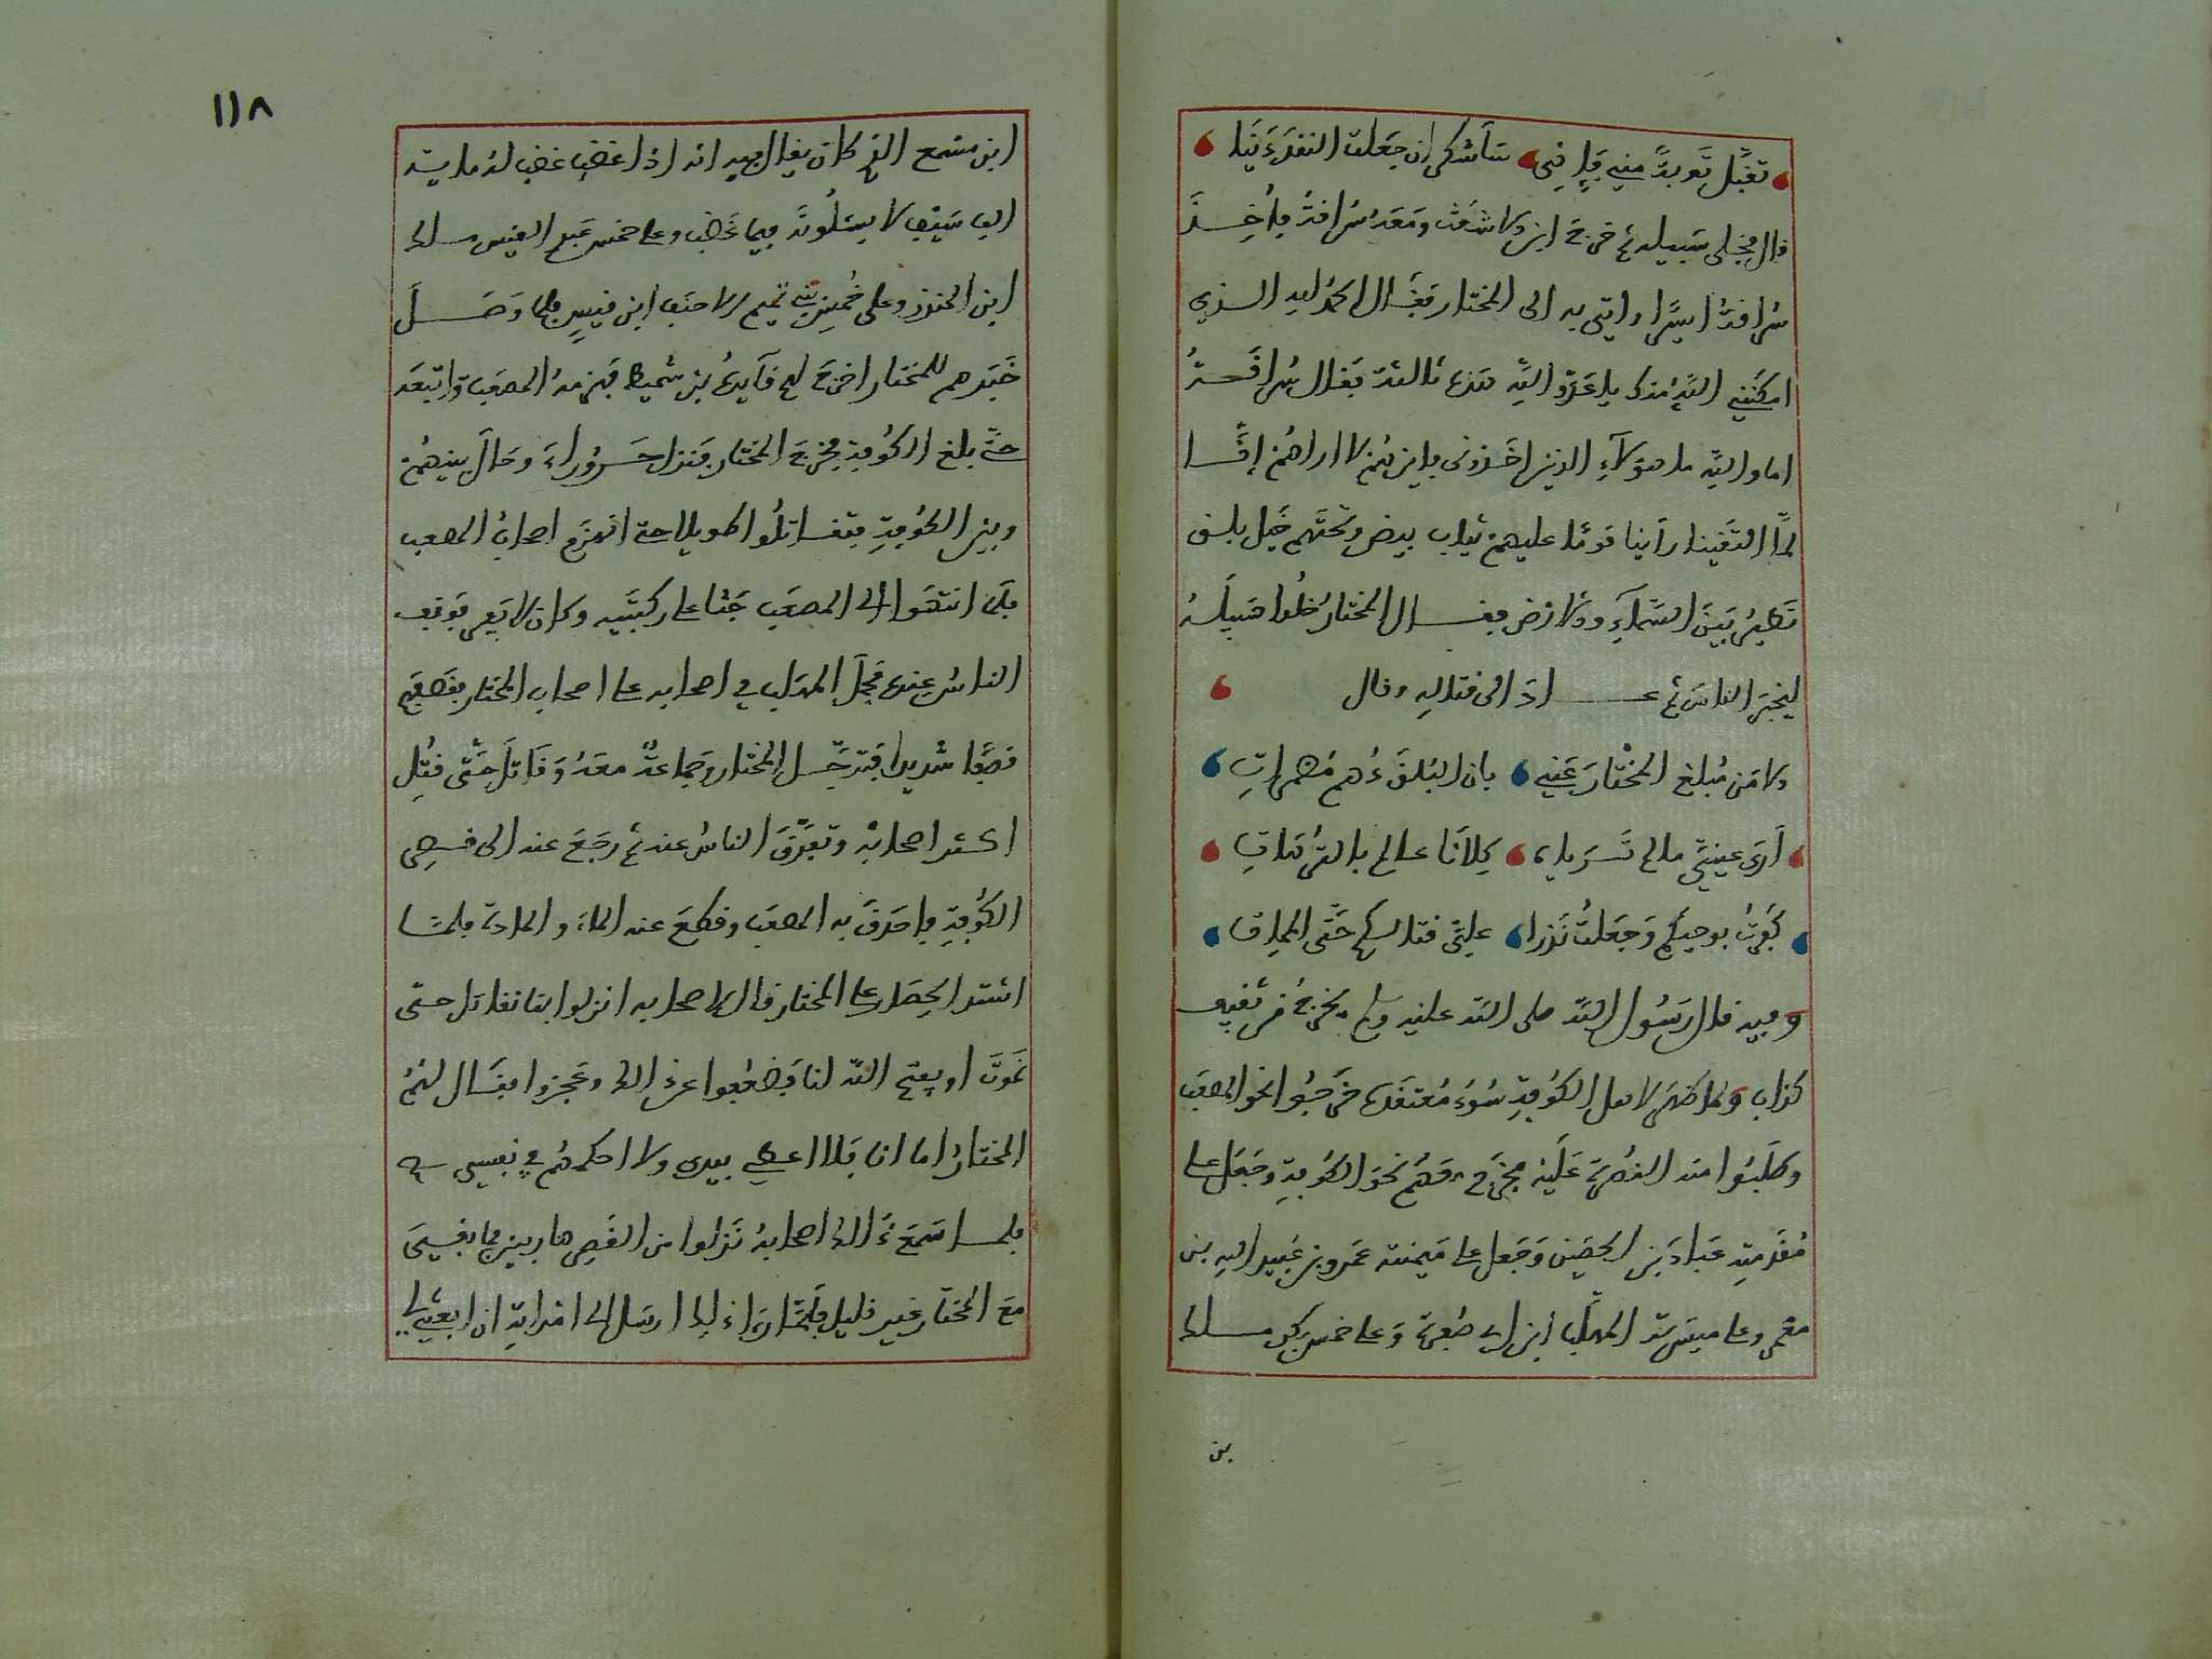 تقبل توبة مني فاني سأشكر ان جعلت النقد دينا
قال فخلى سبيله ثم خرج ابن الاشعث ومعه سراقة فأخذ
سراقة اسيرا واتي به الى المختار فقال الحمد لله الذي
امكنني الله منك يا عدو الله هذه ثالثة فقال سراقة
اما والله ما هؤلاء الذين اخذوني فاين هم لا اراهم إنا
لما التقينا رأينا قوما عليهم ثياب بيض وتحتهم خيل بلق
تطير بين السماء والارض فقال المختار خلوا سبيله
ليخبر الناس ثم عاد الى قتاله وقال
الا من مبلغ المختار عني بان البلق دهم مصمتات
أرى عيني ما لم ترياه كلانا عالم بالترهات
كفرت بوحيكم وجعلت نذرا علي قتالكم حتى الممات
وفيه قال رسول الله صلى الله عليه وسلم يخرج من ثقيف
كذاب ولما ظهر لاهل الكوفة سوء معتقده خرجوا نحو المصعب
وطلبوا منه النصرة عليه فخرج معهم نحو الكوفة وجعل على
مقدمته عباد بن الحصين وجعل على ميمنته عمرو بن عبيد الله بن
معمر وعلى ميسرته المهلب ابن ابي صفرة وعلى خمس بكر مسلك
بن
١١٨
ابن مسمع الذي كان يقال فيه انه اذا غضب غضب له مايتة
الف سيف لا يسئلونه فيما غضب وعلى خمس عبد القيس مسلك
ابن المنذر وعلى خمس بني تميم الاحنف ابن قيس فلما وصل
خبرهم للمختار اخرج لهم قايده بن شميط فهزمه المصعب واتبعه
حتى بلغ الكوفة فخرج المختار فنزل حروراء وحال بينهم
وبين الكوفة فتقاتلوا طويلا حتى انهزم اصحاب المصعب
فلما انتهوا الى المصعب جثا على ركبتيه وكان لا يفر فوقف
الناس عنده فحمل المهلب في اصحابه على اصحاب المختار فقصفهم
قصفا شديدا فترجل المختار وجماعة معه وقاتل حتى قتل
اكثر اصحابه وتفرق الناس عنه ثم رجع عنه الى قصر
الكوفة فاحدق به المصعب وقطع عنه الماء والمادة فلما
اشتد الحصار على المختار قال لاصحابه انزلوا بنا نقاتل حتى
نموت او يفتح الله لنا فضعفوا عن ذلك وعجزوا فقال لهم
المختار اما انا فلا اعطي بيدي ولا احكمهم في نفسي
فلما سمع ذالك اصحابه نزلوا من القصر هاربين فما بقي
مع المختار غير قليل فلما رءا ذلك ارسل الى امراته ان ابعثي لي